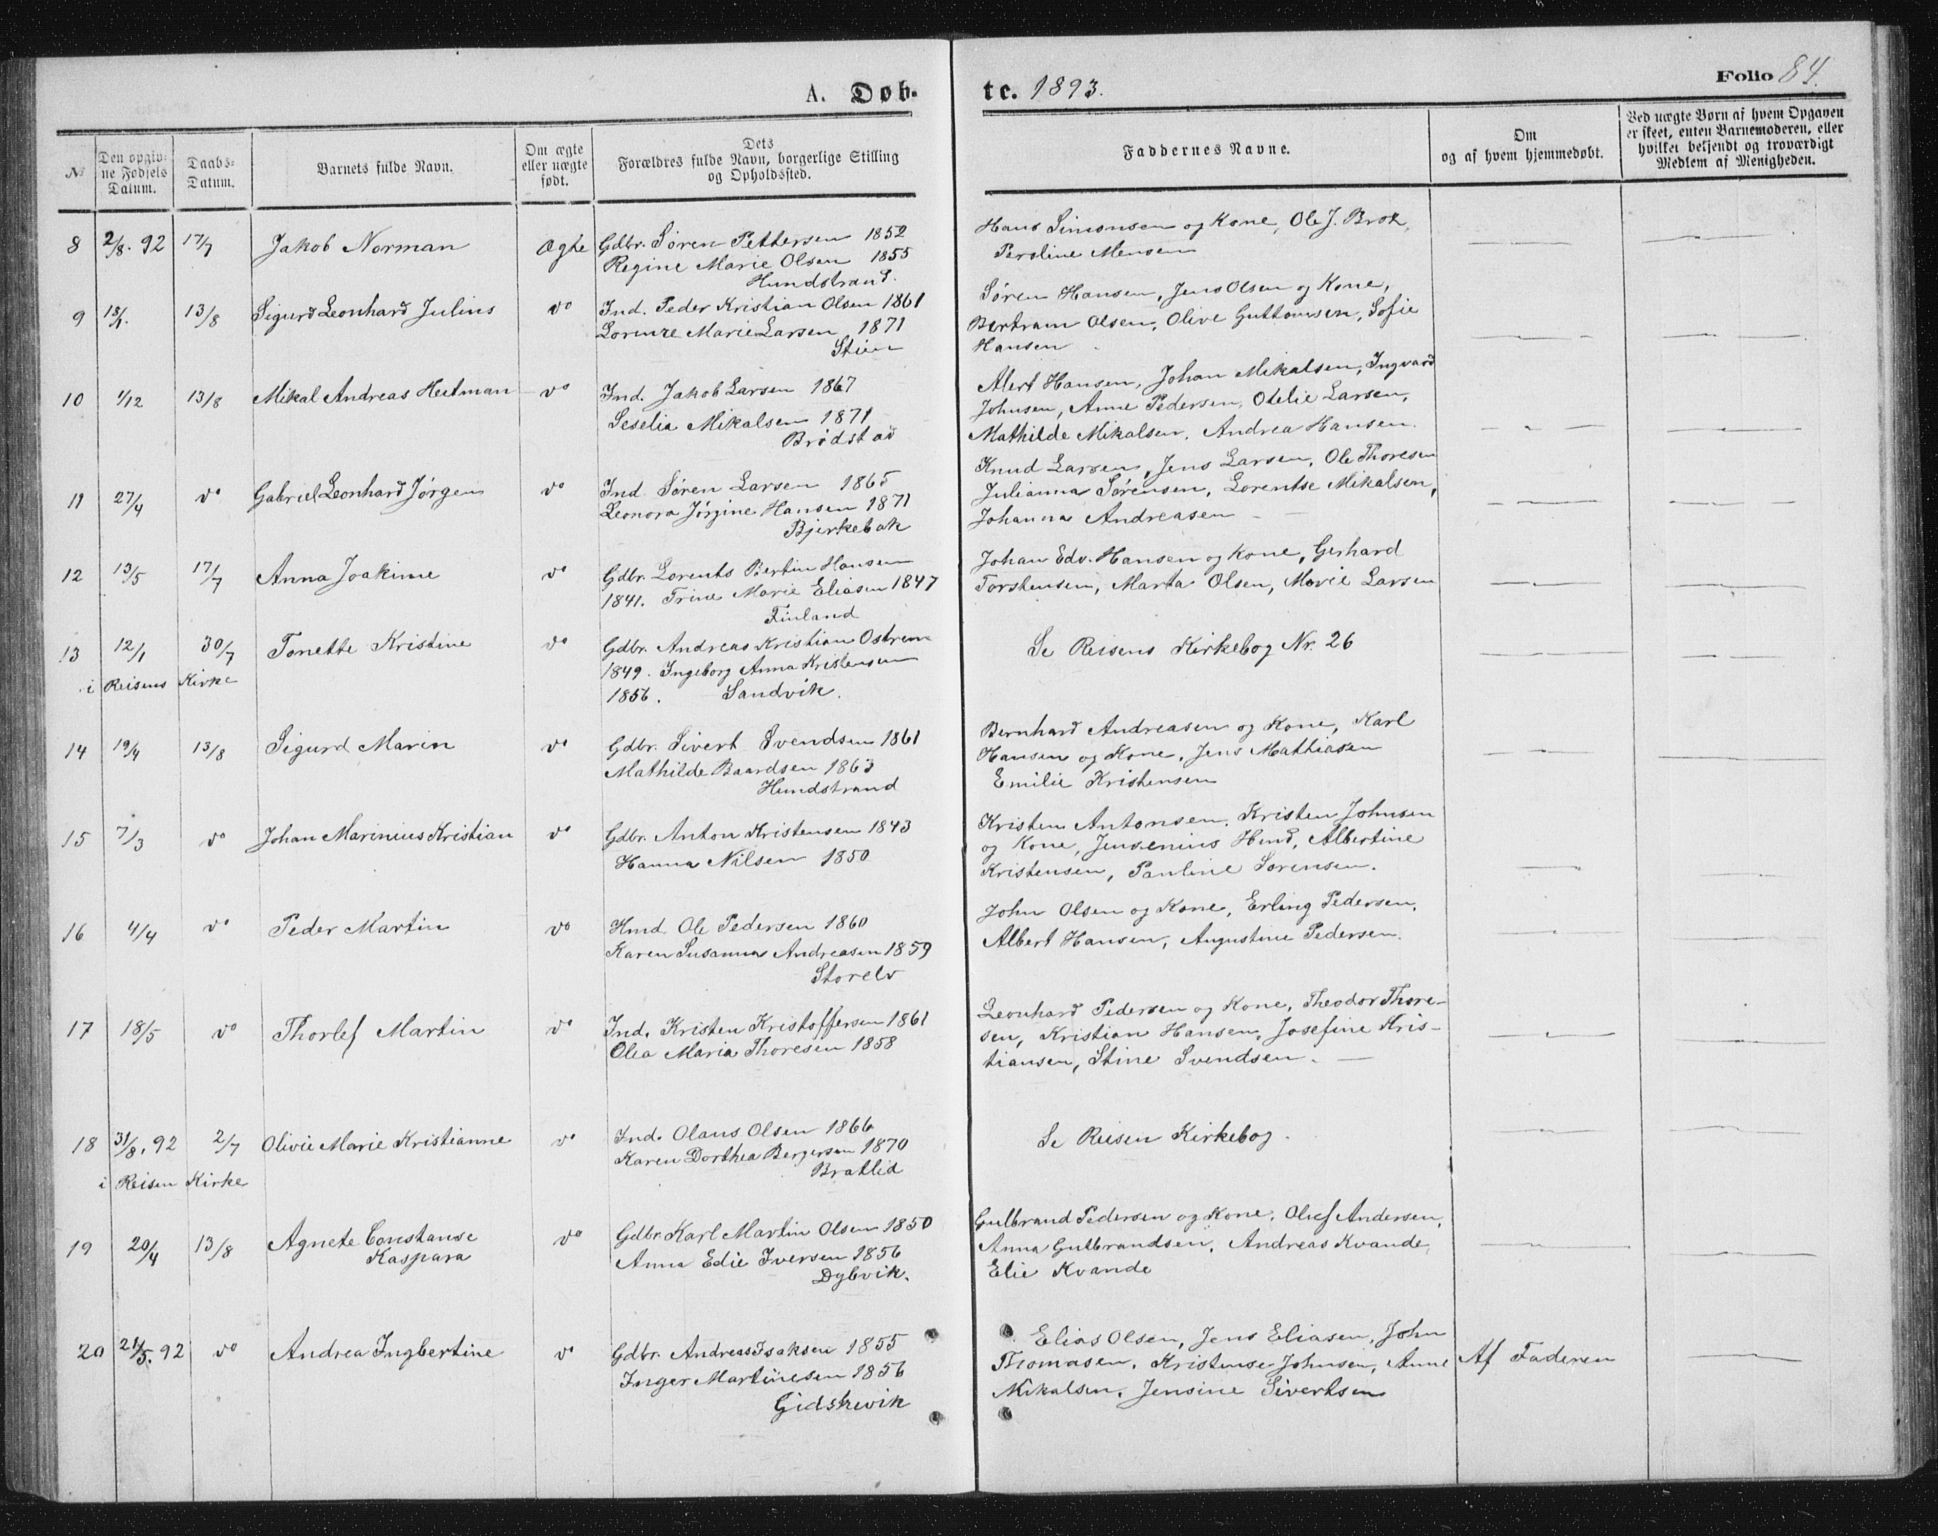 A. Døb-
te. 1893.
Folio 84.
№
Den opgiv-
ne Fødsels
Datum.
Daabs-
Datum.
Barnets fulde Navn.
Om ægte
eller uægte
født.
Dets
Forældres fulde Navn, borgerlige Stilling
og Opholdssted.
Faddernes Navne.
Om
og af hvem hjemmedøbt.
Ved uægte Børn af hvem Opgaven
er skeet, enten Barnemoderen, eller
hvilket bekjendt og troværdigt
Medlem af Menigheden.
8 2/8. 92 17/7 Jakob Norman Ægte Gdbr. Søren Pettersen 1852
Regine Marie Olsen 1855
Hundstrand.
Hans Simonsen og Kone, Ole J. Brox,
Peroline Mensen
9 13/8 Sigurd Leonhard Julius do Ind. Peder Kristian Olsen 1861
Lorenze Marie Larsen 1871
Stien
Søren Hansen, Jens Olsen og Kone,
Bertram Olsen, Olive Guttomsen, Sofie
Hansen
10 1/12 13/8 Mikal Andreas Heitman do Ind. Jakob Larsen 1867
Seselia Mikalsen 1871
Brødstad
Alert Hansen, Johan Mikalsen, Ingvard
Johnsen, Anne Pedersen, Otelie Larsen,
Mathilde Mikalsen, Andrea Hansen.
11 27/4 do Gabriel Leonhard Jørgen do Ind. Søren Larsen 1865
Leonora Jørgine Hansen 1871
Bjerkebak
Knud Larsen, Jens Larsen, Ole Thoresen
Julianna Sørensen, Lorentse Mikalsen,
Johanna Andreasen
12 13/5 17/7 Anna Joakime do Gdbr. Lorents Bertin Hansen
1841. Trine Marie Eliasen 1847
Finland
Johan Edv. Hansen og Kone, Gerhard
Torstensen, Marta Olsen, Marie Larsen
13 12/1 30/7 Tonette Kristine do Gdbr. Andreas Kristian Ostrem
i Reisens Kirke
1849. Ingeborg Anna Kristensen
1856. Sandvik.
Se Reisens Kirkebog Nr. 26
14 19/4 13/8 Sigurd Marin do Gdbr. Sivert Svendsen 1861
Mathilde Baardsen 1863
Hundstrand
Bernhard Andreasen og Kone, Karl
Hansen og Kone, Jens Mathiasen
Emilie Kristensen
15 7/3 do Johan Marinius Kristian do Gdbr. Anton Kristensen 1843
Hanna Nilsen 1850
Kristen Antonsen, Kristen Johnsen
og Kone, Jensenius Hind, Albertine
Kristensen, Pauline Sørensen.
16 4/4 do Peder Martin do Hmd. Ole Pedersen 1860
Karen Susanna Andreasen 1859
Storelv
John Olsen og Kone, Erling Pedersen,
Albert Hansen, Augustine Pedersen.
17 18/5 do Thorlef Martin do Ind. Kristen Kristoffersen 1861
Olea Maria Thoresen 1858
Leonhard Pedersen og Kone, Theodor Thore-
sen, Kristian Hansen, Josefine Kris-
tiansen, Stine Svendsen.
18 31/8. 92 2/7 Olivie Marie Kristianne do Ind. Olaus Olsen 1866
i Reisen Kirke
Karen Dorthea Bergersen 1870
Bratlid
Se Reisen Kirkebog.
19 20/4 13/8 Agnete Constanse
Kaspara
do Gdbr Karl Martin Olsen 1850
Anna Edie Iversen 1856
Dybvik.
Gulbrand Pedersen og Kone, Olief Andersen,
Anna Gulbrandsen, Andreas Kvande,
Elie Kvande
20 21/5. 92 do Andrea Ingbertine do Gdbr. Andreas Isaksen 1855
Inger Martinesen 1856
Gidskevik
Elias Olsen, Jens Eliasen, John
Thomasen, Kristense Johnsen, Anne
Mikalsen, Jensine Sivertsen
Af Faderen